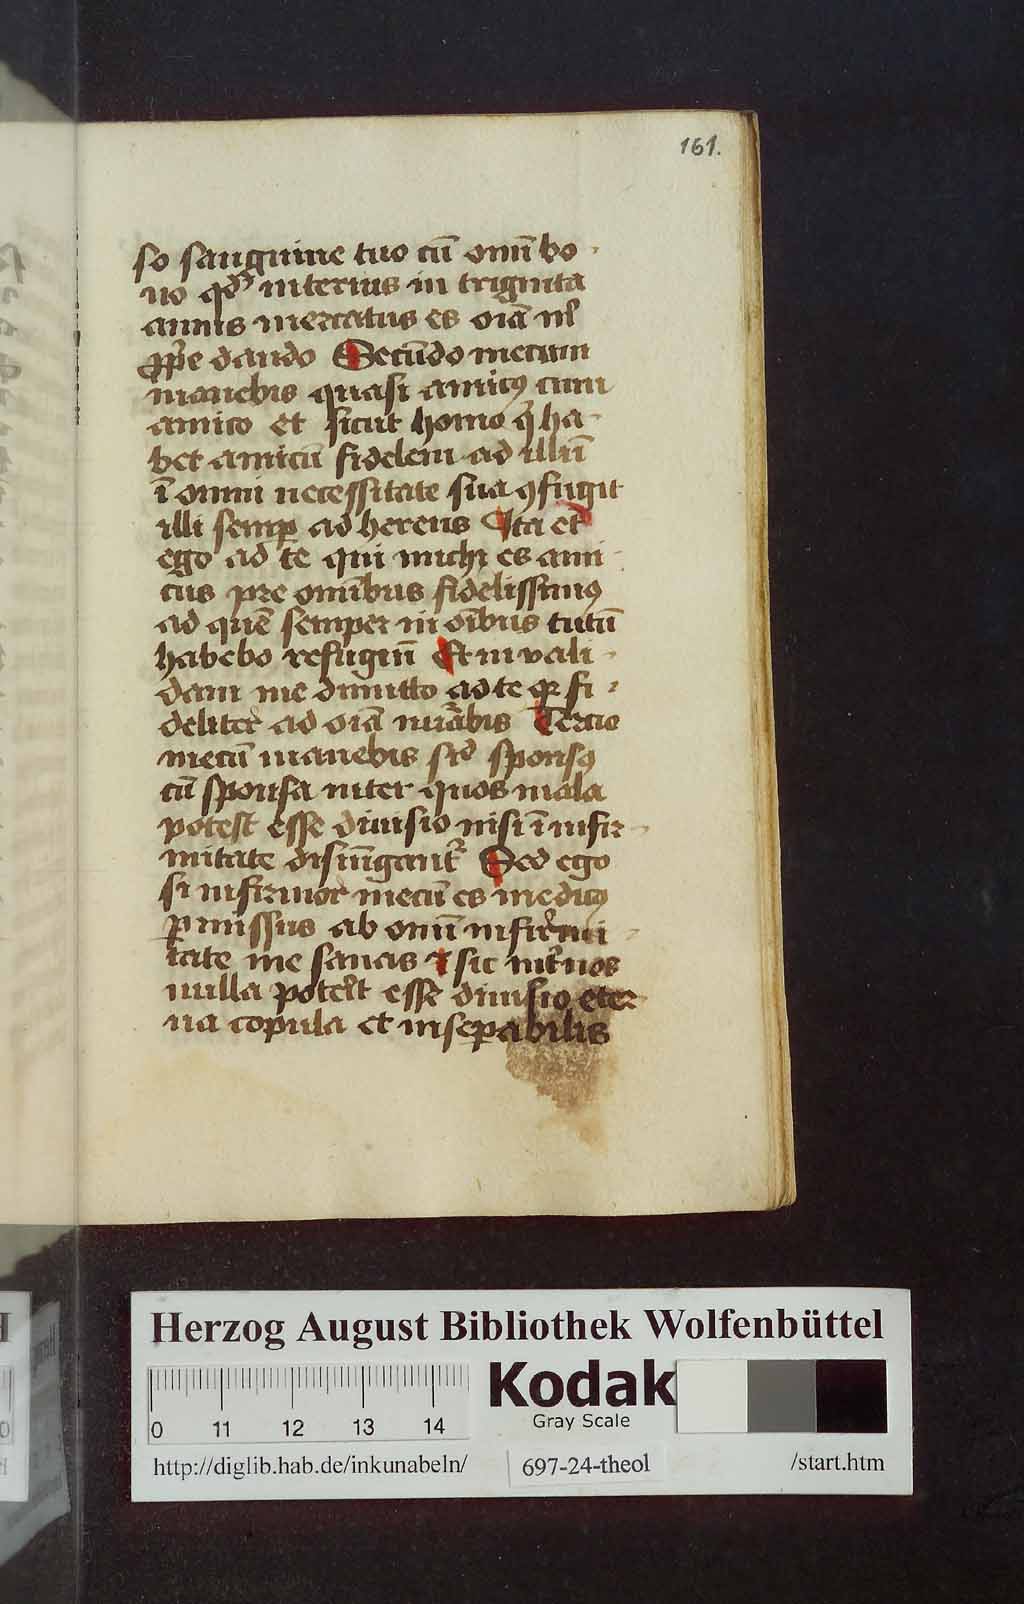 161.
so sanguine tuo cū omī bo
no qd' interius in triginta
annis mercatus es oīa nl̄
pp̄e dando Secūdo mecum
manebis quasi amicꝯ cum
amico et sicut homo q̄ ha
bet amicū fidelem ad illū
ī omni necessitate sua ꝯfugit
illi semꝑ ad herens Ita et
ego ad te qui michi es ami
cus pre omībus fidelissimꝯ
ad quē semper in oībus tutū
habebo refugiū Et in vali
dam me dimitto ad te
deliter ad oīa mīabis Tercio
mecū manebis sic̄ sponsꝯ
cū sponsa inter quos mala
potest esse diuisio nisi ī infir
mitate disiūgant᷑ Sed ego
si infirmor mecū es medicꝯ
ꝑmissus ab omī infirmi
tate me sanas ⁊ sic int̄ nos
nulla poterit esse diuisio eter
na copula et inseꝑabilis
Herzog August Bibliothek Wolfenbüttel
0 11 12 13 14
Kodak
Gray Scale
http://diglib.hab.de/inkunabeln/ 697-24-theol /start.htm